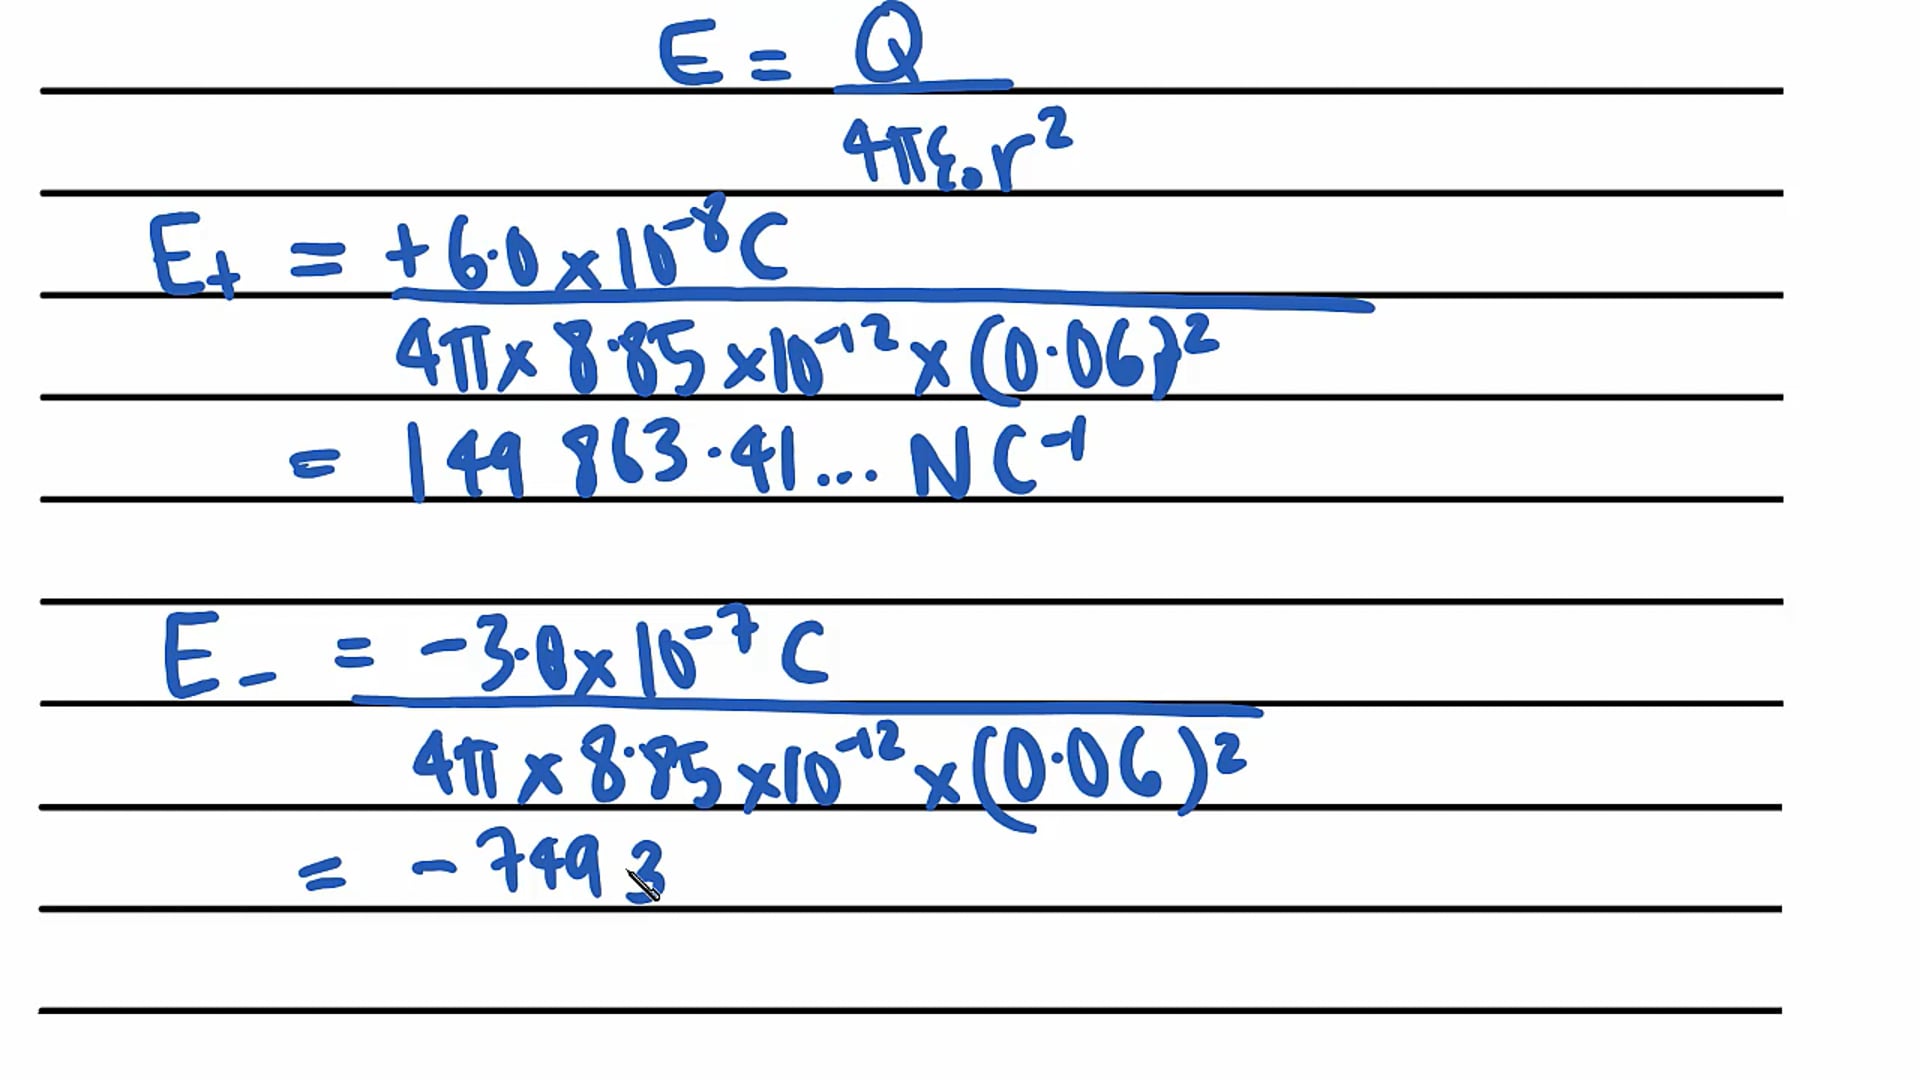 E = Q
4πε₀r²
E₊ = +6.0 x 10⁻⁸ C
4π x 8.85 x 10⁻¹² x (0.06)²
= 149 863.41... N C⁻¹
E₋ = -3.0 x 10⁻⁷ C
4π x 8.85 x 10⁻¹² x (0.06)²
= - 749 3